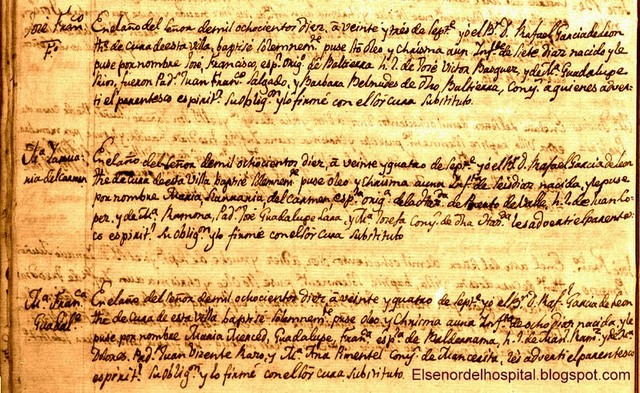 José Franco
F.
En el año del Señor de mil ochocientos diez, à veinte y tres de Septe yo el Br. D. Rafael Garcia de Leon
the. de Cura de esta villa, baptisé solemnemte puse Sto oleo y Chrisma a un Infte de siete diaz nacido, y le
puse por nombre José, Francisco, esp. orig. de Baltierra h. l. de José Victor Basquez, y de Ma Guadalupe
Rios, fueron Pads Juan Franco Salgado, y Barbara Belmudes de dho Baltierra, Cony. a quienes adver
ti el parentesco espirit. Su obligon y lo firmé con el Sor cura Substituto.
Ma Janua
ria del Carmen
En el año del Señor de mil ochocientos diez, à veinte y quatro de Septe yo el Br. D. Rafael Garcia de Leon
the de Cura de esta Villa baptisé solemnemte puse oleo y Chrisma a una Infta de seis diaz nacida, y le puse
por nombre Maria, Januaria, del Carmen, esp. orig. de la de Puerto de Valle, h. l. de Juan Lo
pez, y de Ma Ramona, Pad. José Guadalupe Lara, y Ma Josefa Cony. de dha les advertí el parentes
co espirit. Su obligon y lo firmé con el Sor cura Substituto
Ma Franca
Guadal.
En el año del Señor de mil ochocientos diez, à veinte y quatro de Septe yo el Br. D. Rafl Garcia de Leon
the de Cura de esta villa baptisé solemnemte puse oleo y Chrisma a una Infta de ocho diaz nacida, y le
puse por nombre Maria Merced, Guadalupe, Franca esp. de h. l. de y de
Dolores, Pad. Juan Vizente Razo, y Ma Ana Pimentel Cony. de Mancerita, les advertí el parentesco
espirit. Su obligon y lo firmé con el Sor cura Substituto.
Elsenordelhospital.blogspot.com